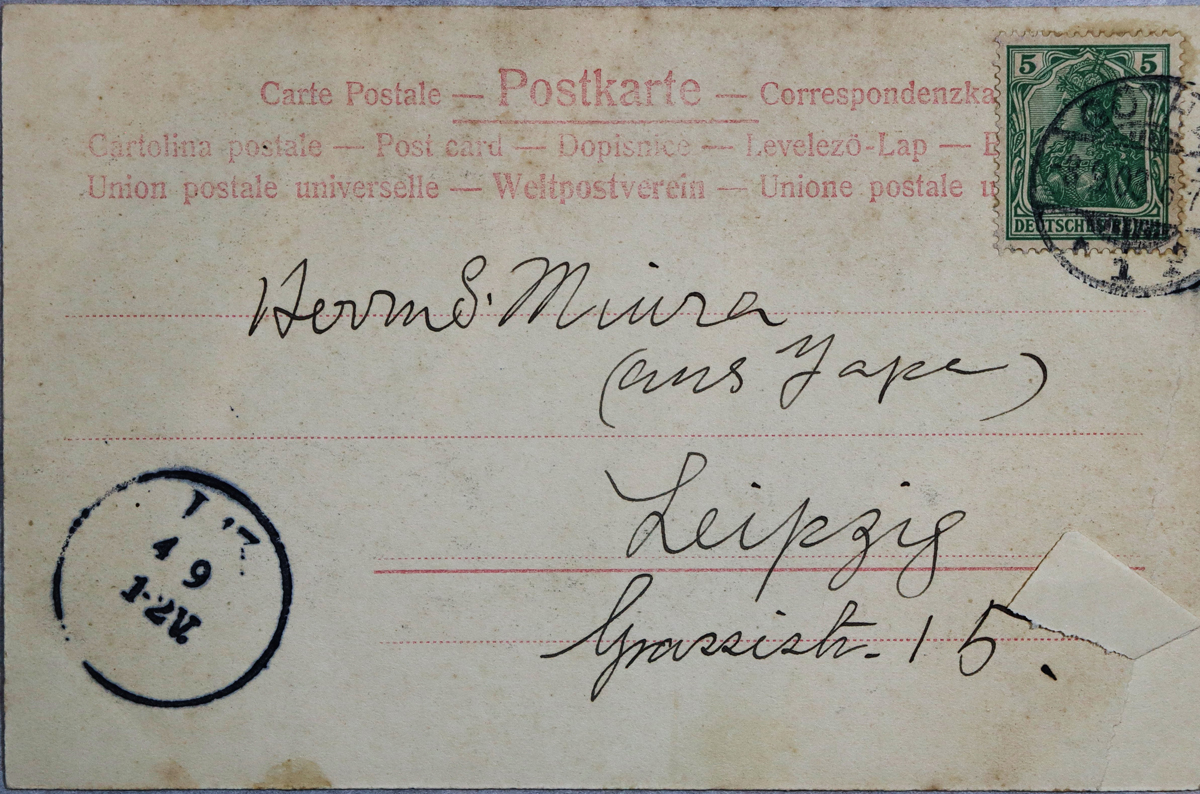 Carte Postale — Postkarte — Correspondenzka
Cartolina postale — Post card — Dopisnice — Levelező-Lap —
Union postale universelle — Weltpostverein — Unione postale u
5 5
DEUTSCHES REICH
Herrn S. Miura
(aus Japan)
Leipzig
Grassistr. 15.
4 9
1-2V.